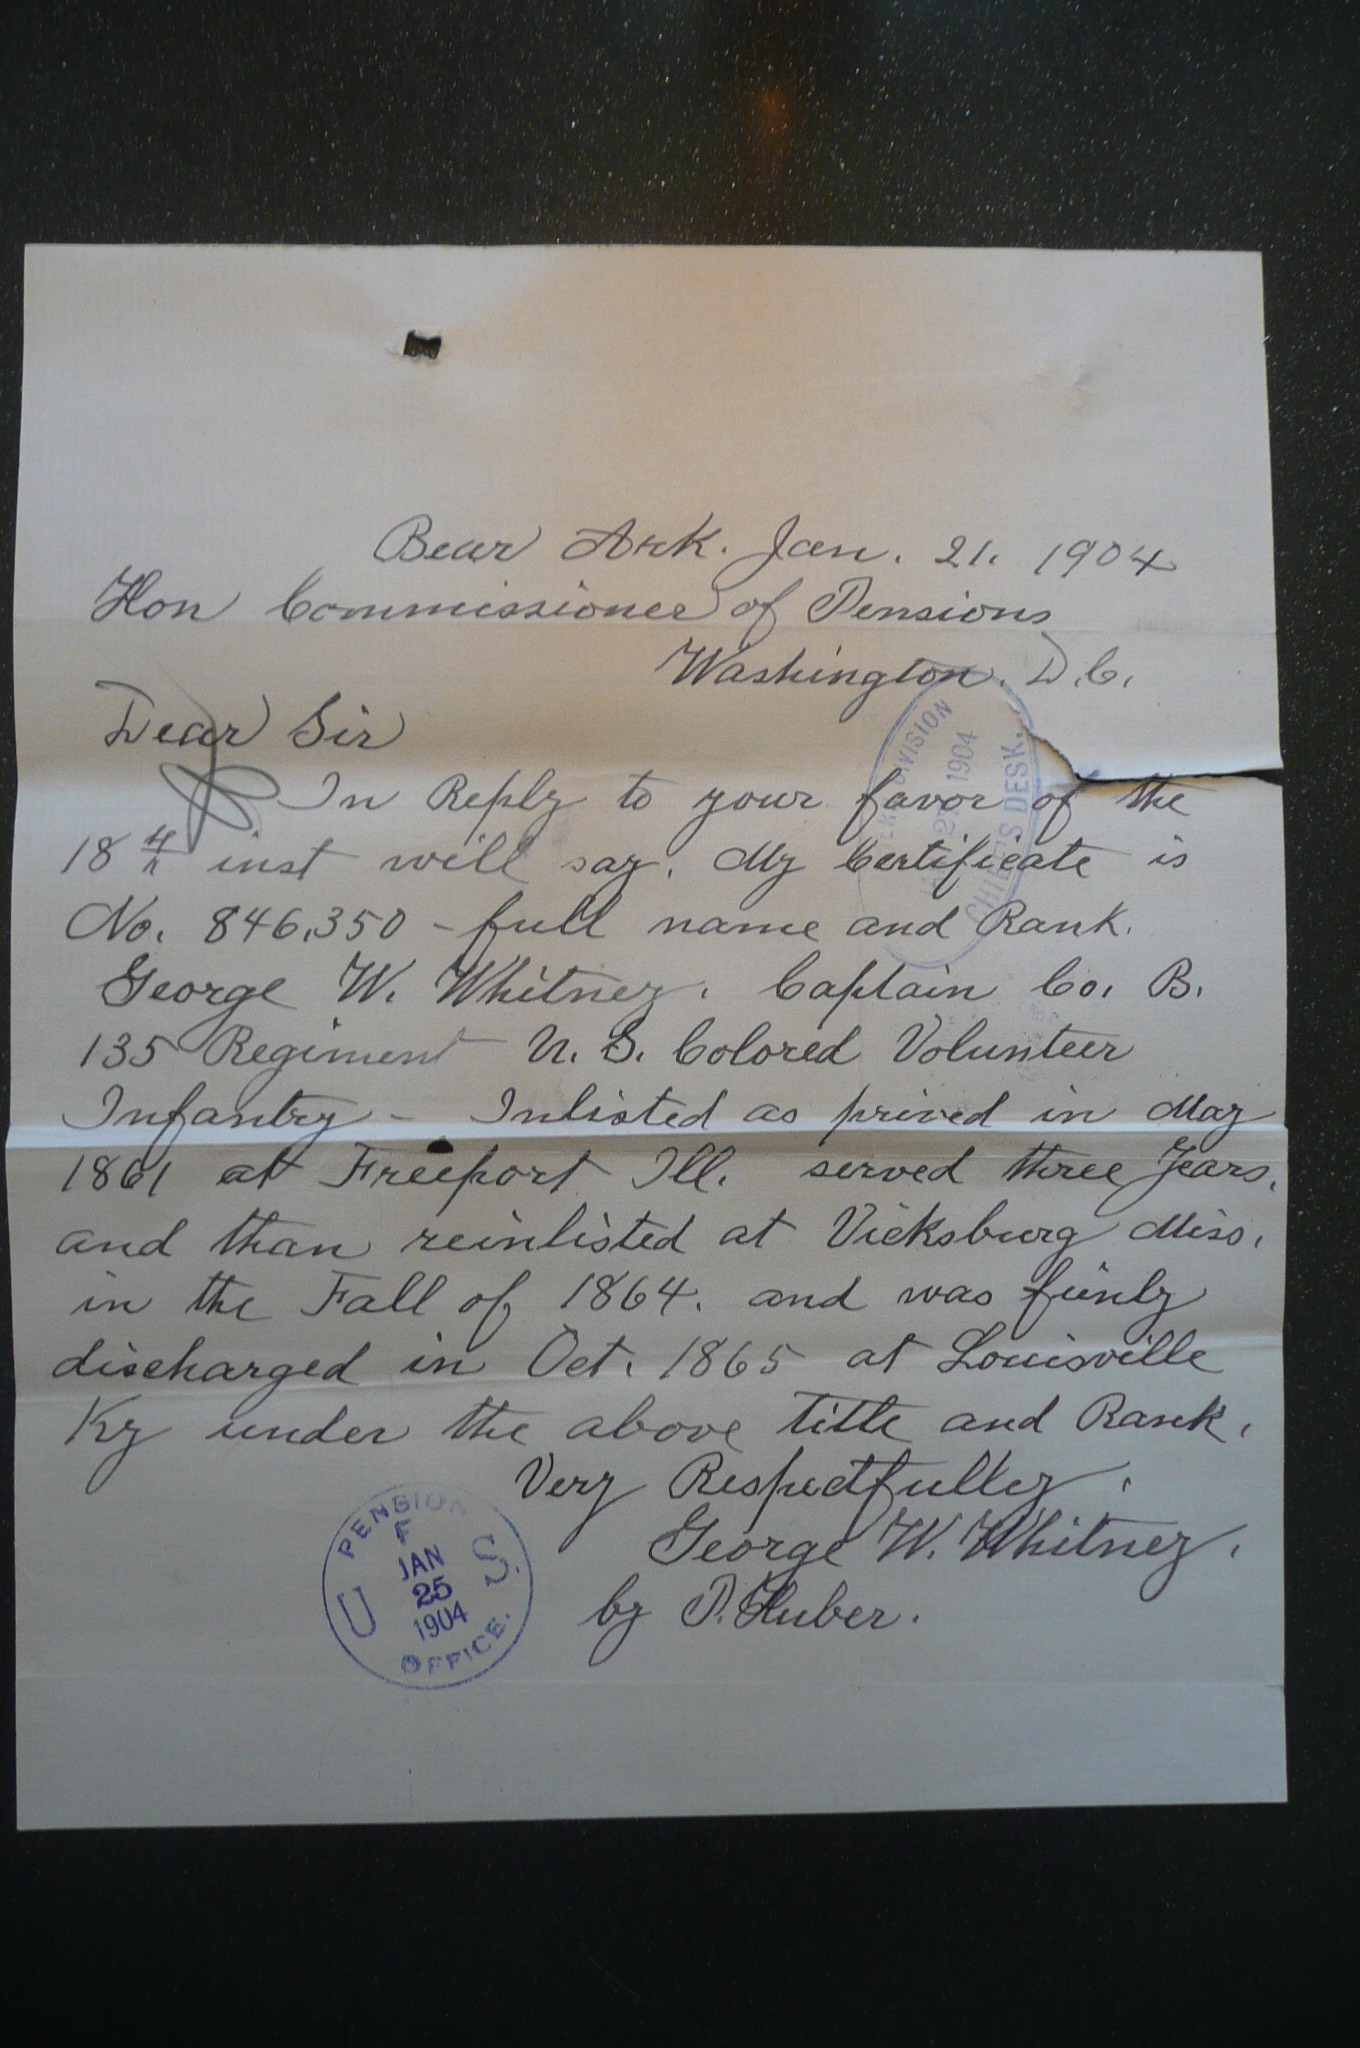 Bear Ark. Jan. 21. 1904
Hon Commissioner of Pensions
Washington. D.C.
Dear Sir
In Reply to your favor of the
18th inst will say. My Certificate is
No. 846,350 - full name and Rank.
George W. Whitney. Captain Co. B.
135 Regiment U. S. Colored Volunteer
Infantry - Inlisted as prived in May
1861 at Freeport Ill. served three Years.
and than reinlisted at Vicksburg Miss.
in the Fall of 1864. and was finly
discharged in Oct. 1865 at Louisville
Ky under the above title and Rank.
Very Respectfulley.
George W. Whitney.
by P. Huber.
DIVISION
1904
CHIEF'S DESK.
U. S. PENSION OFFICE.
F
JAN
25
1904